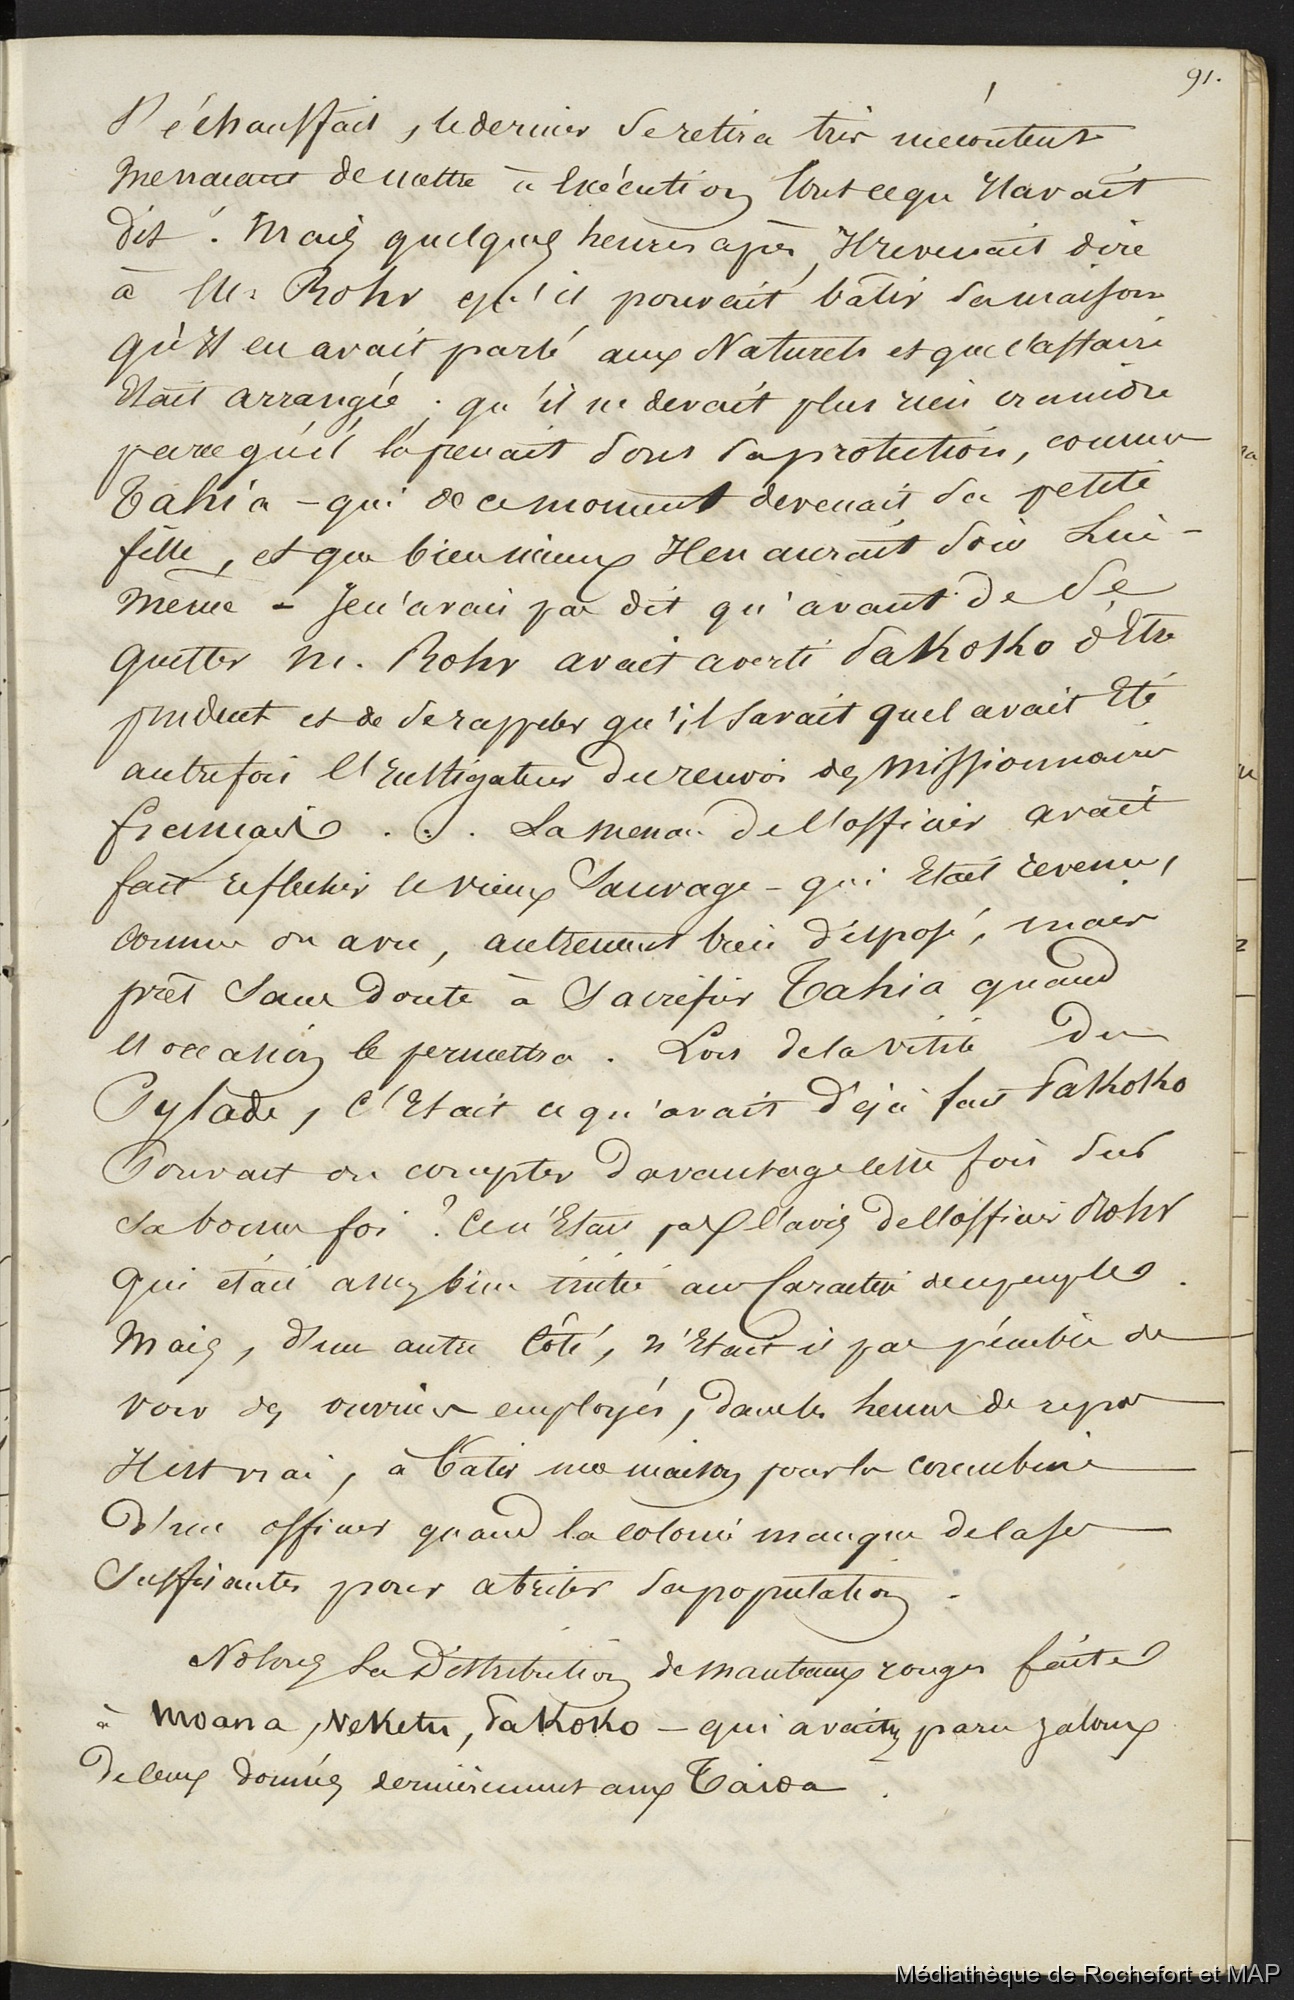 91.
S'échauffait, le dernier se retira très mécontent
Menacant de mettre à exécution tout ce qu'Il avait
dit. Mais quelques heures après, Il revenait dire
à Mr Rohr qu'il pouvait bâtir sa maison
qu'Il en avait parlé aux Naturels et que l'affaire
Etait arrangée ; qu'il ne devait plus rien craindre
parce qu'il la prenait sous sa protection, comme
Tahia - qui de ce moment devenait sa petite
fille, et que bien mieux Il en aurait soin Lui-
Même - Je n'avais pas dit qu'avant de se
quitter M. Rohr avait averti Pakoko d'Etre
prudent et de se rappeler qu'il savait quel avait Eté
autrefois l'Instigateur du renvoi des Missionnaires
français . . . La menace de l'officier avait
fait réfléchir le vieux Sauvage - qui Etait revenu,
comme on a vu, autrement bien disposé, mais
prêt sans doute à Sacrifier Tahia quand
l'occasion le permettra. Lors de la visite Du
Pylade, C'Etait ce qu'avait déjà fait Pakoko
Pouvait on compter davantage cette fois sur
sa bonne foi ? Ce n'Etait pas l'avis de l'officier Rohr
qui était assez bien initié au Caractère de ces peuples.
Mais, d'un autre Côté, n'Etait il pas pénible de
voir des ouvriers employés, dans les heures de repos
Il est vrai, à bâtir une maison pour la concubine
D'un officier quand la colonie manque de cases
Suffisantes pour abriter sa population.
Notons la Distribution de manteaux rouges faite
à Moana, Niketu, Pakoko - qui avaient paru jaloux
De ceux donnés dernièrement aux Taioa.
Médiathèque de Rochefort et MAP